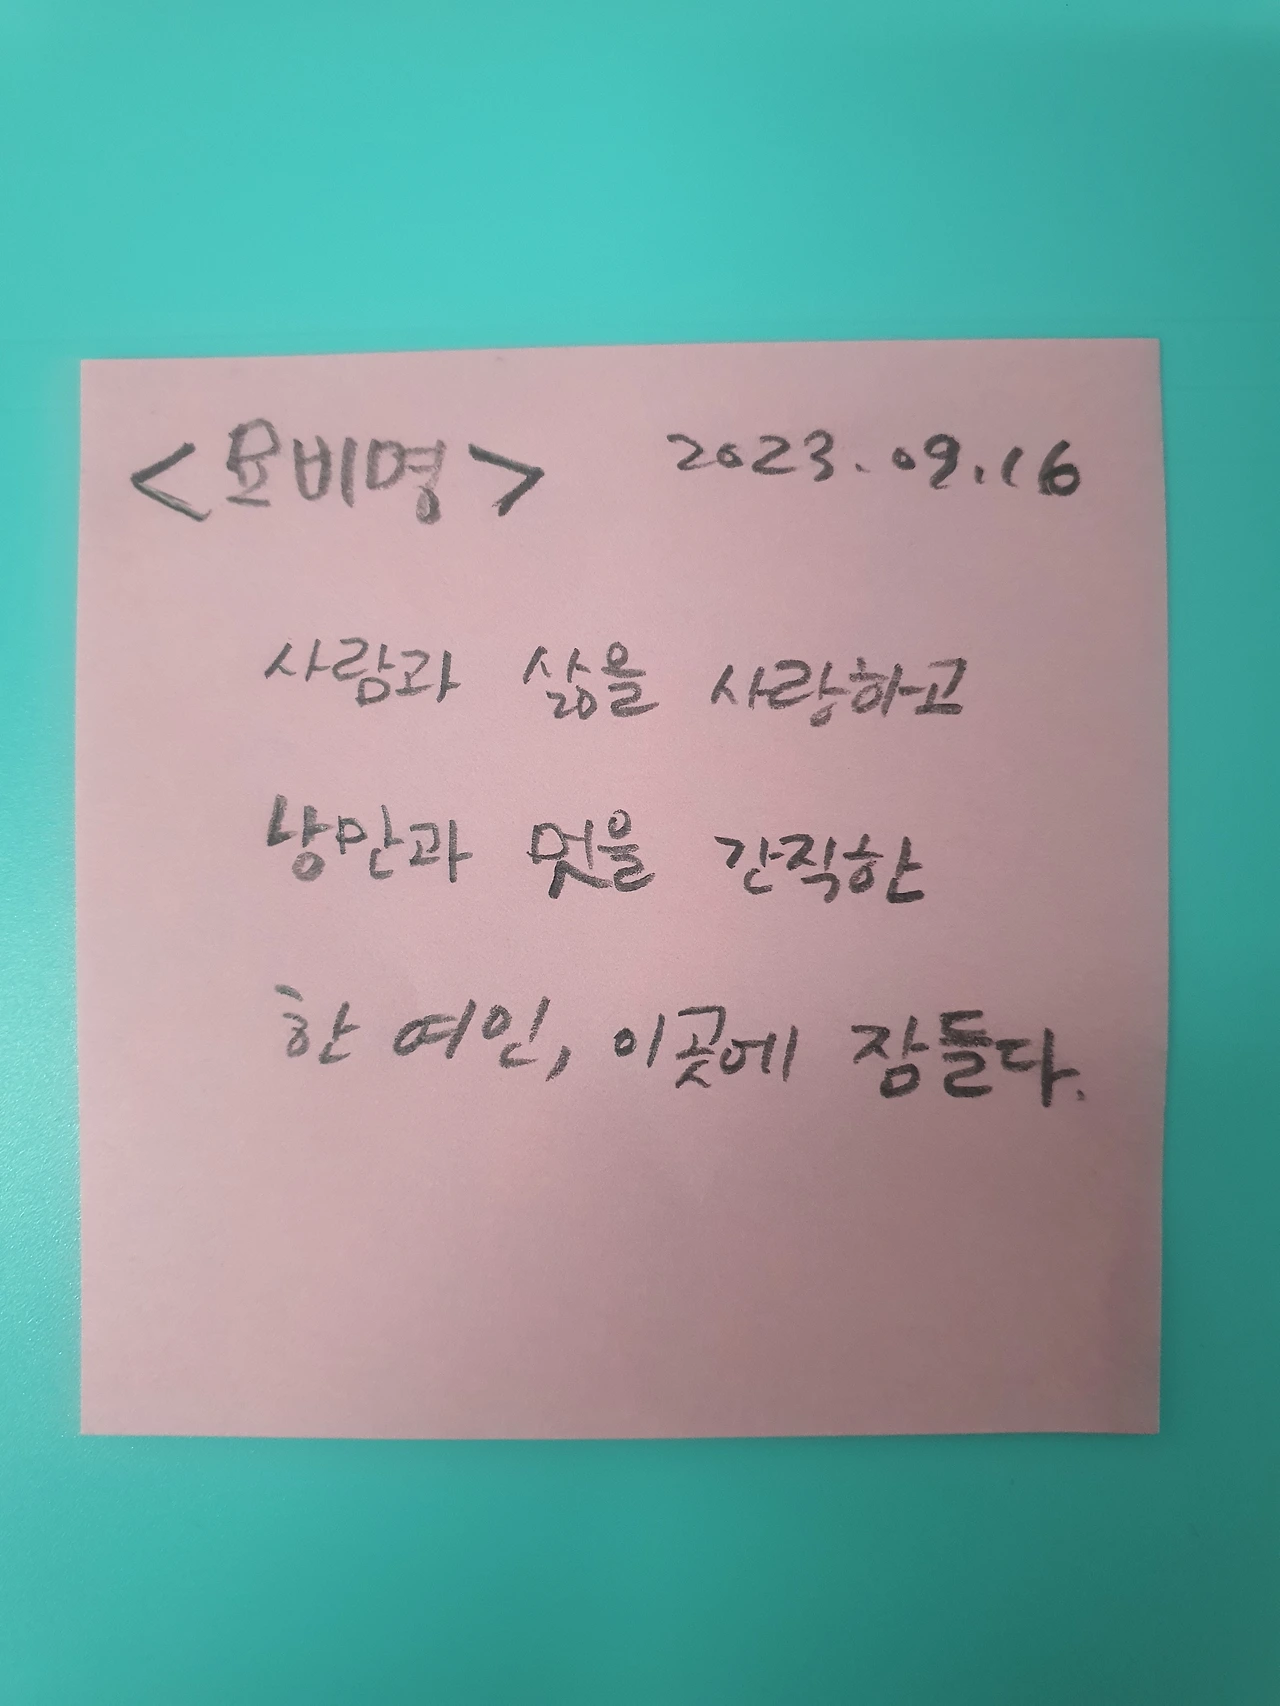 <묘비명> 2023.09.16
사람과 삶을 사랑하고
낭만과 멋을 간직한
한 여인, 이곳에 잠들다.